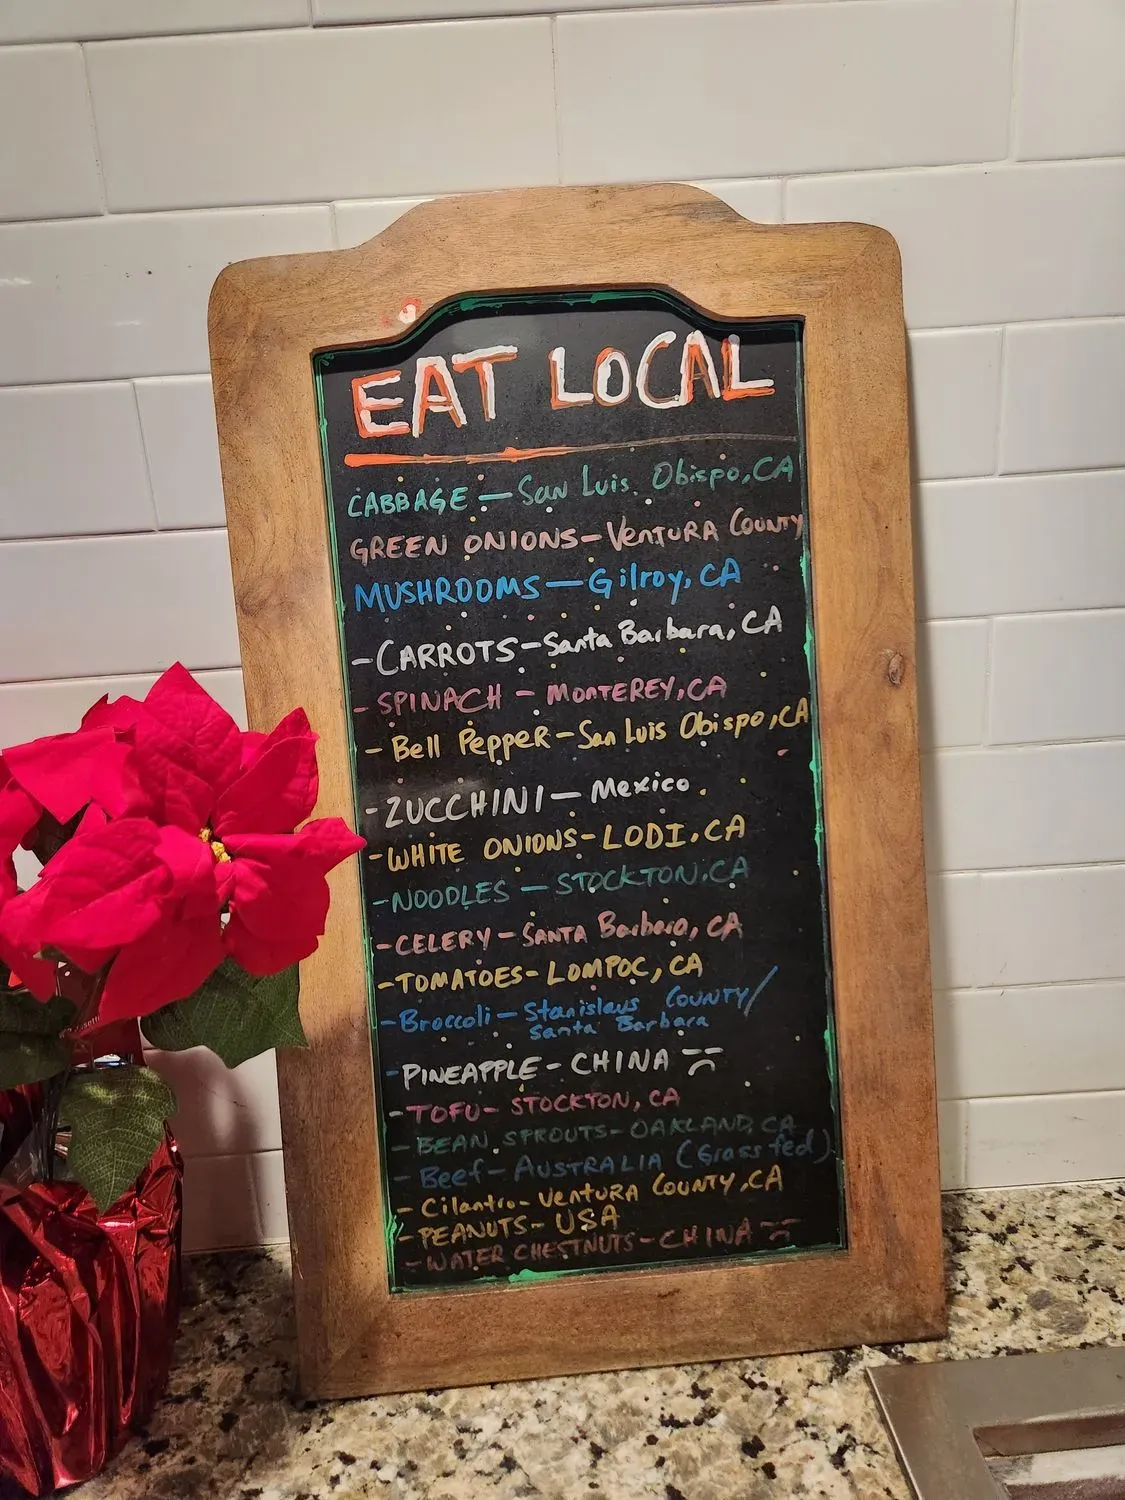 EAT LOCAL
CABBAGE — San Luis Obispo, CA
GREEN ONIONS - VENTURA COUNTY
MUSHROOMS — Gilroy, CA
- CARROTS - Santa Barbara, CA
- SPINACH - MONTEREY, CA
- Bell Pepper - San Luis Obispo, CA
- ZUCCHINI — Mexico
- WHITE ONIONS - LODI, CA
- NOODLES — STOCKTON, CA
- CELERY - SANTA Barbara, CA
- TOMATOES - LOMPOC, CA
- Broccoli - Stanislaus COUNTY/
Santa Barbara
- PINEAPPLE - CHINA
- TOFU - STOCKTON, CA
- BEAN SPROUTS - OAKLAND, CA
- Beef - AUSTRALIA (Grass fed)
- Cilantro - VENTURA COUNTY, CA
- PEANUTS - USA
- WATER CHESTNUTS - CHINA